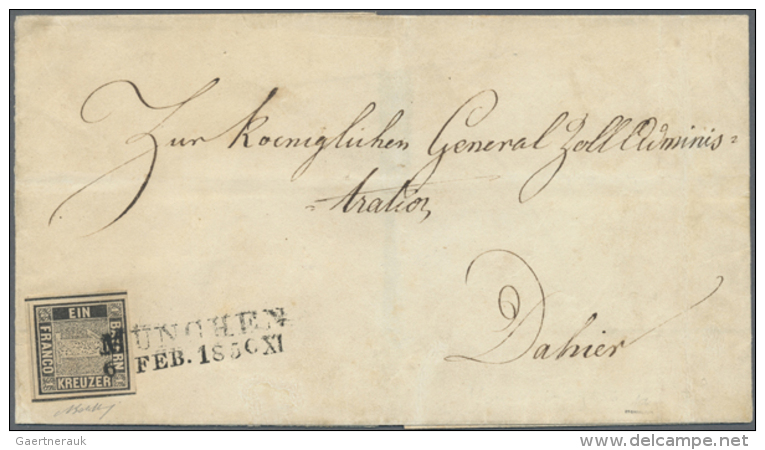 Zur koeniglichen General Zoll Adminis=
=tration
Dahier
EIN
BAYERN
FRANCO
KREUZER
MÜNCHEN
6 FEB. 1850 XI
Gaertnerauk
delcampe.net